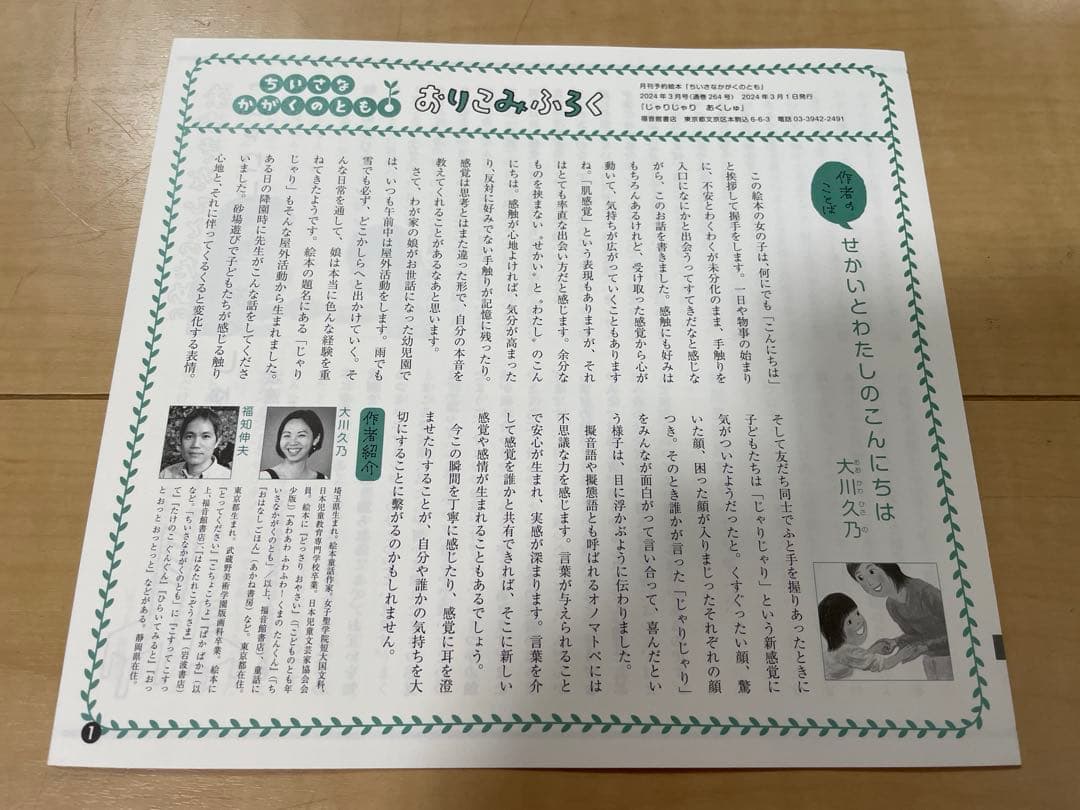 ちいさな
かがくのとも
おりこみふろく
月刊予約絵本「ちいさなかがくのとも」
2024年3月号(通巻264号) 2024年3月1日発行
「じゃりじゃり あくしゅ」
福音館書店 東京都文京区本駒込6-6-3 電話03-3942-2491
作者の
ことば
せかいとわたしのこんにちは
大川久乃
おおかわひさの
この絵本の女の子は、何にでも「こんにちは」
と挨拶して握手をします。一日や物事の始まり
に、不安とわくわくが未分化のまま、手触りを
入口になにかと出会うってすてきだなと感じな
がら、このお話を書きました。感触にも好みは
もちろんあるけれど、受け取った感覚から心が
動いて、気持ちが広がっていくこともあります
ね。「肌感覚」という表現もありますが、それ
はとても率直な出会い方だと感じます。余分な
ものを挟まない〝せかい〟と〝わたし〟のこん
にちは。感触が心地よければ、気分が高まった
り、反対に好みでない手触りが記憶に残ったり。
感覚は思考とはまた違った形で、自分の本音を
教えてくれることがあるなあと思います。
さて、わが家の娘がお世話になった幼児園で
は、いつも午前中は屋外活動をします。雨でも
雪でも必ず、どこかしらへと出かけていく。そ
んな日常を通して、娘は本当に色んな経験を重
ねてきたようです。絵本の題名にある「じゃり
じゃり」もそんな屋外活動から生まれました。
ある日の降園時に先生がこんな話をしてくださ
いました。砂場遊びで子どもたちが感じる触り
心地と、それに伴ってくるくると変化する表情。
そして友だち同士でふと手を握りあったときに
子どもたちは「じゃりじゃり」という新感覚に
気がついたようだったと。くすぐったい顔、驚
いた顔、困った顔が入りまじったそれぞれの顔
つき。そのとき誰かが言った「じゃりじゃり」
をみんなが面白がって言い合って、喜んだとい
う様子は、目に浮かぶように伝わりました。
擬音語や擬態語とも呼ばれるオノマトペには
不思議な力を感じます。言葉が与えられること
で安心が生まれ、実感が深まります。言葉を介
して感覚を誰かと共有できれば、そこに新しい
感覚や感情が生まれることもあるでしょう。
今この瞬間を丁寧に感じたり、感覚に耳を澄
ませたりすることが、自分や誰かの気持ちを大
切にすることに繋がるのかもしれません。
作者紹介
大川久乃
埼玉県生まれ。絵本童話作家。女子聖学院短大国文科、
日本児童教育専門学校卒業。日本児童文芸家協会会
員。絵本に『どっさり おやさい』(「こどものとも年
少版」)『あわあわ ふわふわ!くまの たんくん』(「ち
いさなかがくのとも」/以上、福音館書店)、童話に
『おはなしごはん』(あかね書房)など。東京都在住。
福知伸夫
東京都生まれ。武蔵野美術学園版画科卒業。絵本に
『とってください』『こちょこちょ』『ぱかぱか』(以
上、福音館書店)、『はなたれこぞうさま』(岩波書店)
など。「ちいさなかがくのとも」に『こすってこすっ
て』『たけのこ ぐんぐん』『ひらいてみると』『おっ
とおっとおっとっと』などがある。静岡県在住。
1